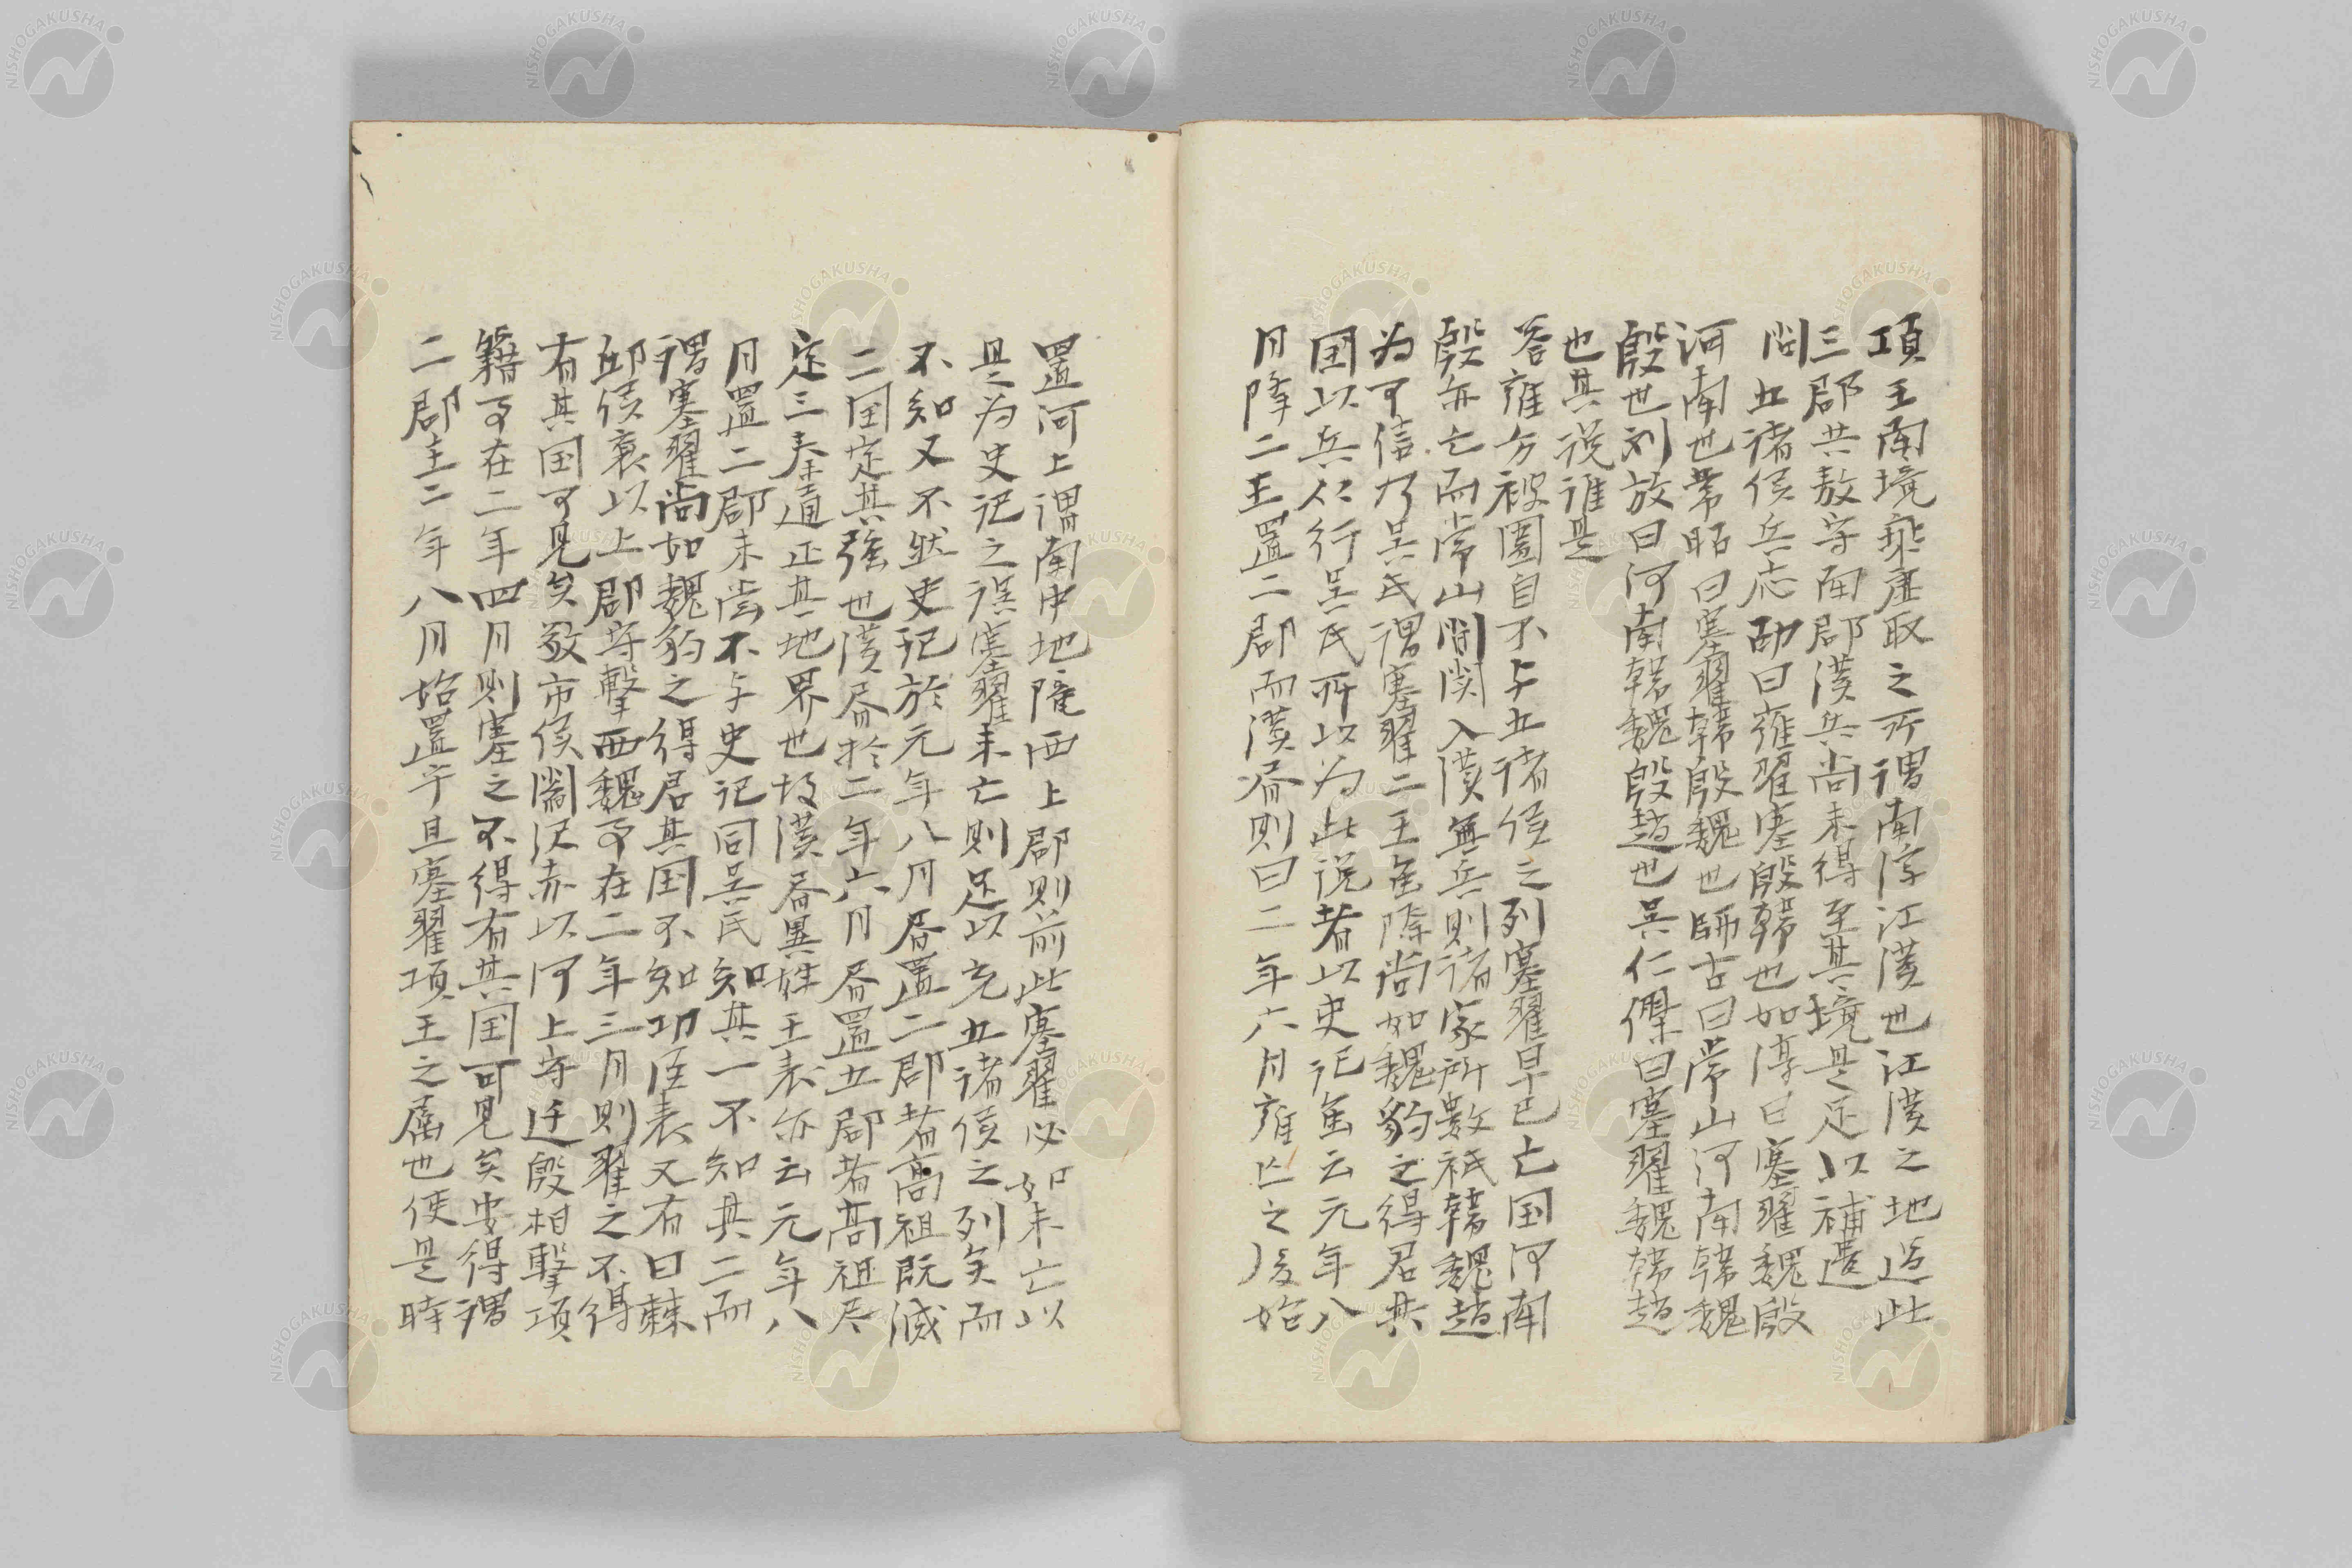 項王南境乘虚取之所謂南浮江漢也江漢之地迄此
三郡共敖守南郡漢兵尚未得至其境是足以補遺
問五諸侯兵応劭曰雍翟塞殷韓也如淳曰塞翟魏殷
河南也韋昭曰塞翟韓殷魏也師古曰常山河南韓魏
殷也刘放曰河南韓魏殷趙也吳仁傑曰塞翟魏韓趙
也其説誰是
答雍方被圍自不与五諸侯之列塞翟早已亡国河南
殷亦亡而常山間関入漢無兵則諸家所數祇韓魏趙
为可信乃吳氏謂塞翟二王虽降尚如魏豹之得君其
国以兵从行吳氏所以为此説者以史記虽云元年八
月降二王置二郡而漢昏則曰二年六月雍亡之后始
置河上渭南中地隴西上郡則前此塞翟必如未亡以
是为史記之誤塞翟未亡則足以充五諸侯之列矣而
不知又不然史記於元年八月昏置二郡者高祖既滅
二国定其疆也漢昏於二年六月昏置五郡者高祖尽
定三秦通正其地界也故漢昏異姓王表亦云元年八
月置二郡未嘗不与史記同吳氏知其一不知其二而
謂塞翟尚如魏豹之得君其国不知功臣表又有曰棘
邱侯襄以上郡守擊西魏事在二年三月則翟之不得
有其国可見矣敬市侯閻沢赤以河上守迁殷相擊項
籍事在二年四月則塞之不得有其国可見矣安得謂
二郡主二年八月始置守且塞翟項王之属也使是時